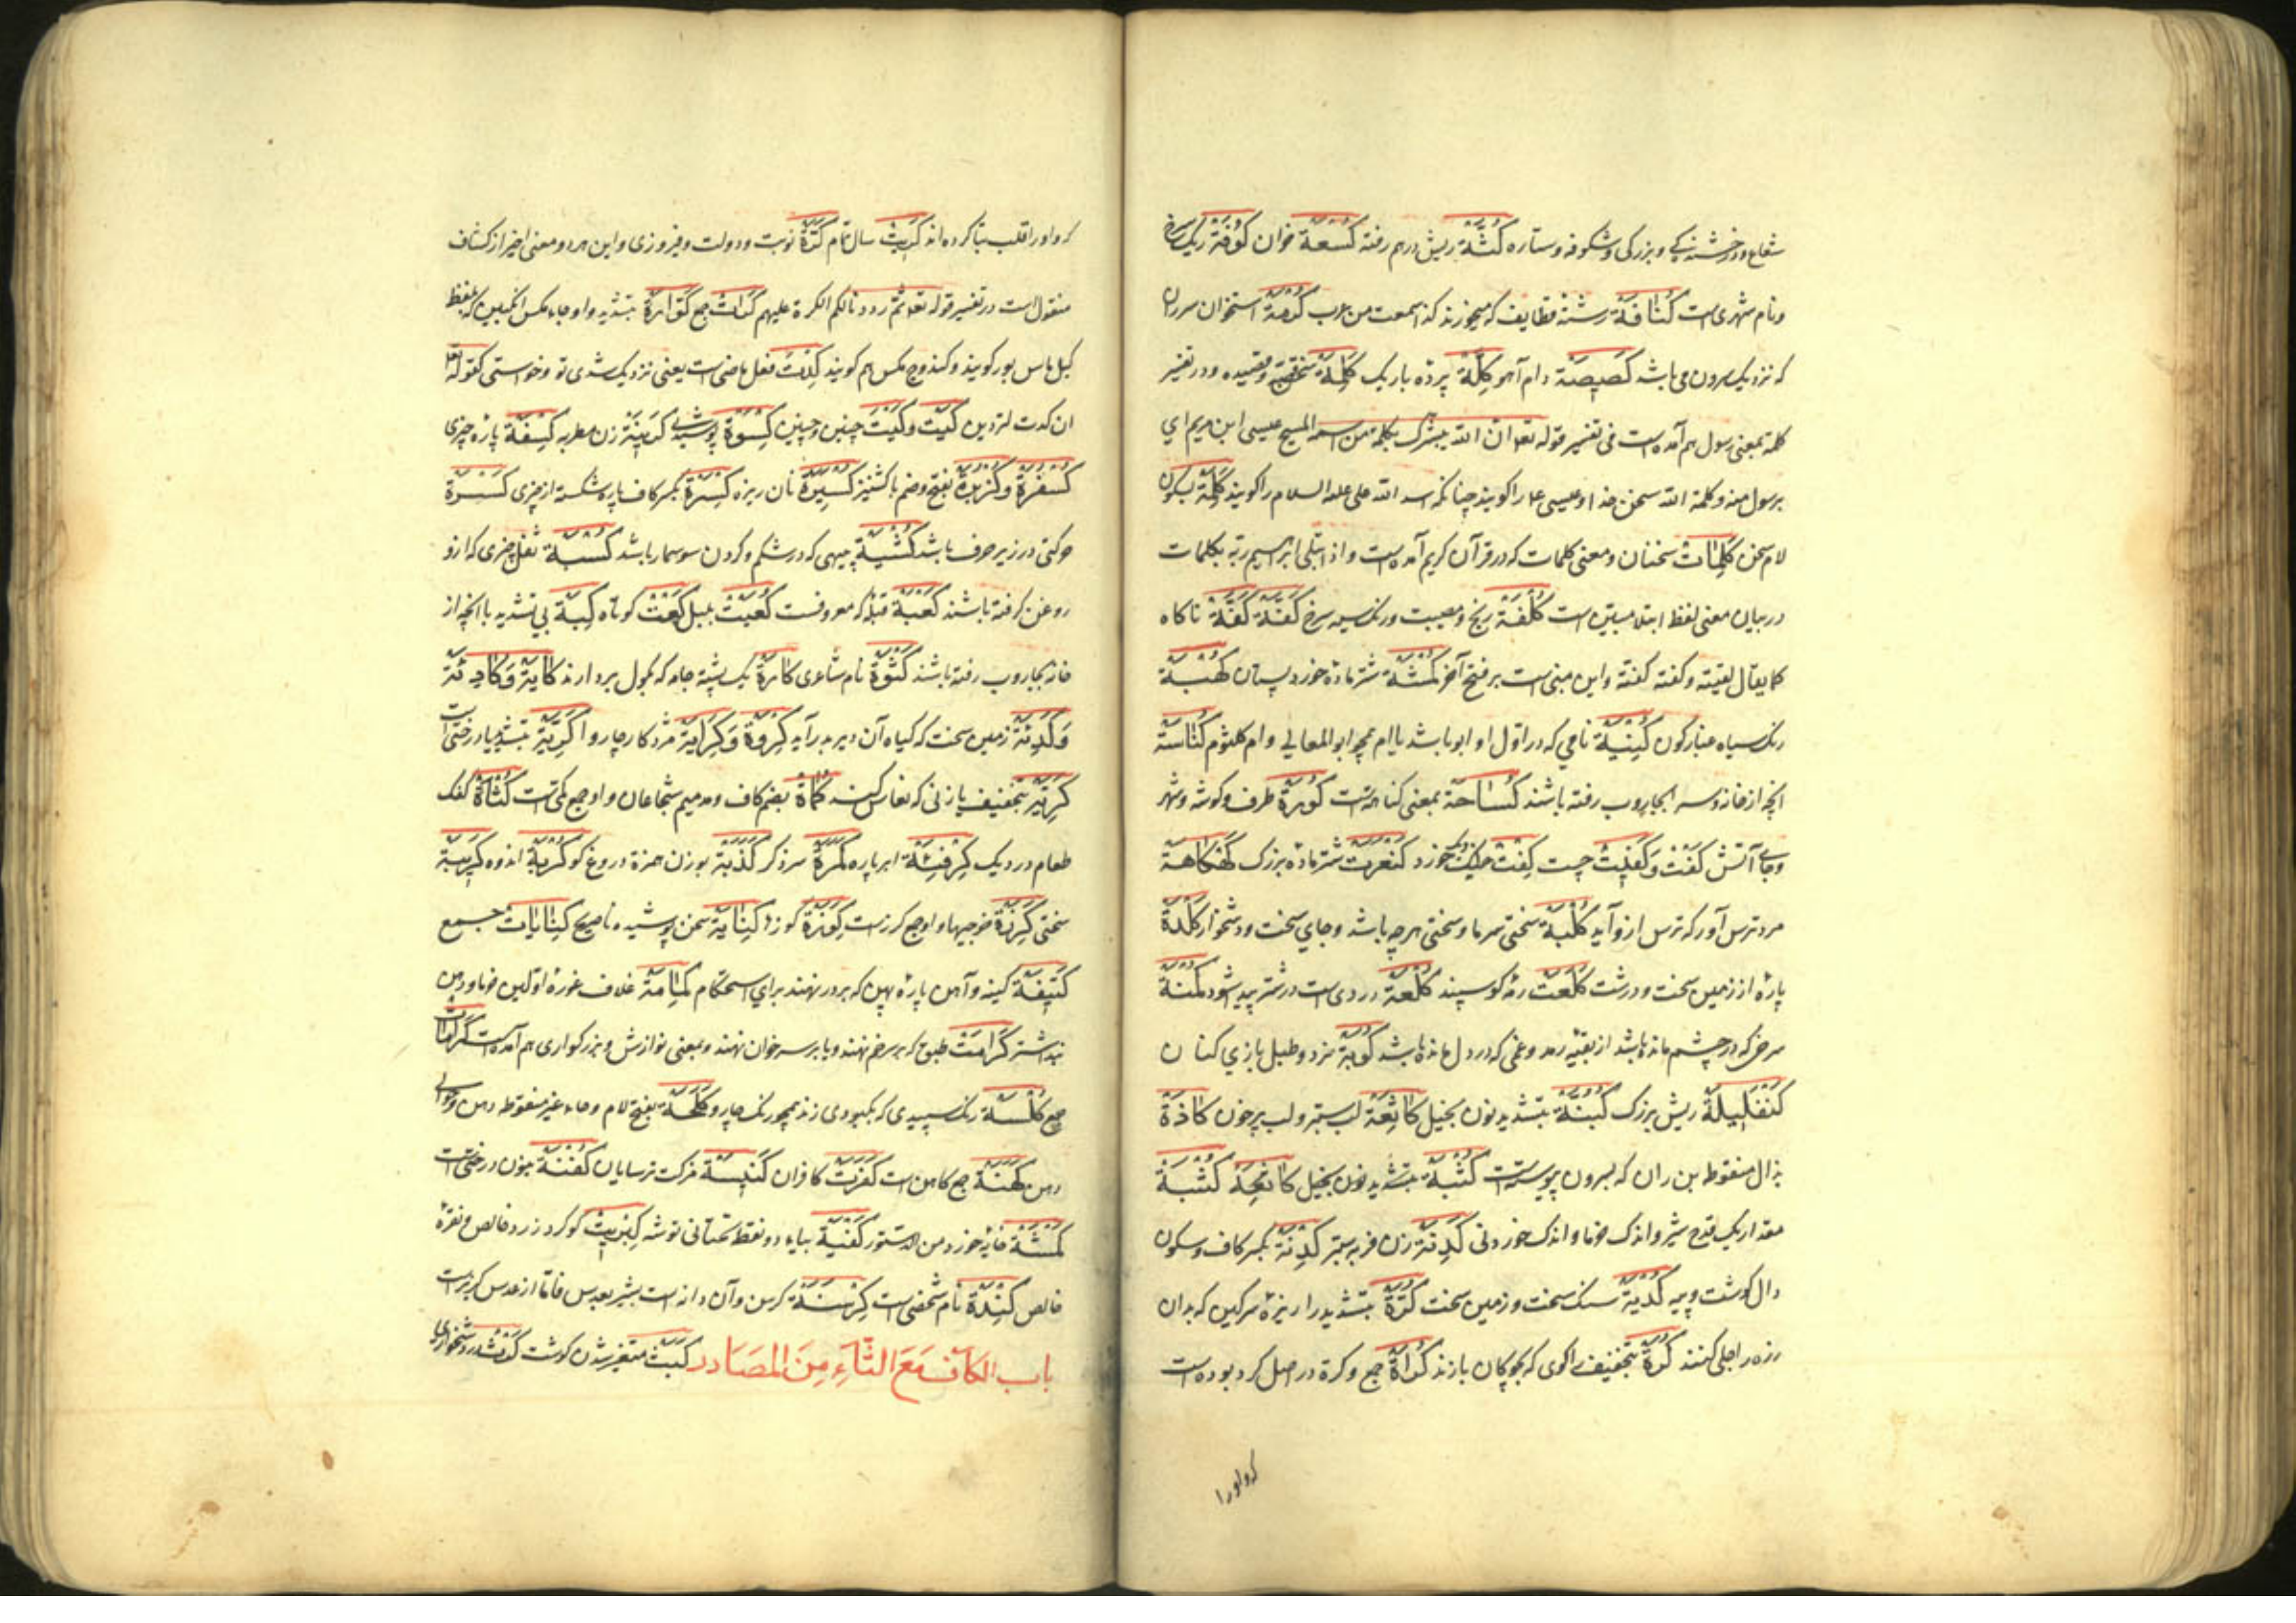 شعاع و درخشندگی و بزرگی و شکوفه و ستاره کُثَّة ریش درهم رفته کُسعة خوان کُوفَة ریک سرخ
و نام شهری است کُنافَة رشته قطایف که میخورند کذا سمعت من عرب استخوان سردن
که نزدیک سردن می باشد کَصِیصَة دام آهو کِلَّة پرده باریک کَلِمَة سخن و قصیده و در تفسیر
کلمة بمعنی رسول هم آمده است فی تفسیر قوله تعه ان الله یبشرک بکلمة من اسمه المسیح عیسی ابن مریم ای
برسول منه و کلمة الله سخن خدا و عیسی ع را گویند چنانکه اسد الله علی علیه السلام را گویند کَلْمَة بسکون
لام سخن کَلِمَات سخنان و معنی کلمات که در قرآن کریم آمده است و اذ ابتلی ابرهیم ربه بکلمات
در بیان معنی لفظ ابتلا مبین است کُلْفَة رنج و مصیبت و رنک سیه سرخ کَفَّةَ کَفَّةَ ناکاه
کما یقال لقیته کفته کفته و این مبنی است بر فتح آخر کَمْشَة شتر ماده خورد پستان کُهْبَة
رنک سیاه غبارکون کُنْیَة نامی که در اول او ابو باشد یا ام همچو ابو المعالی و ام کلثوم کُنَاسَة
آنچه از خانه و سرا بجاروب رفته باشند کُسَاحَة بمعنی کناسه است کُورَة طرف و کوشه و شهر
و جای آتش کَفْت وَ کَفِیت چست کِفْت دیک خورد شتر ماده بزرک کَهْکَاهَة
مرد ترس آور که ترس از و آید کُلْبَة سختی سرما و سختی هرچه باشد و جای سخت و دشخوار کَلَدَة
پاره از زمین سخت و درشت کَلَعَة رمه کوسپند کُلْعَة دردی است در شتر پیدا شود کُمْنَة
سرخی که در چشم مانده باشد از بقیه رمد و غمی که در دل مانده باشد کُوبَة نرد و طبل بازی کنان
کَنْفَلِیلَة ریش بزرک کُبُنَّة بتشدید نون بخیل کَاثِعَة لب ستبر و لب پرخون کَاذَة
بذال منقوطه بن ران که بیرون پوست است بتشدید نون بخیل کُثْبَة
مقدار یک قدح شیر و اندک خرما و اندک خوردنی کَدِنَة زن فربه ستبر کِدْنَة بکسر کاف و سکون
دال کوشت و پیه کُدْیَة سنک سخت و زمین سخت کُرَّة بتشدید را ریزه سرکین که بدان
زره را جلی کنند کُرَة بتخفیف را کوی که بچوکان بازند کُرَاة جمع و کرة در اصل کرو بوده است
که واو را
که واو را قلب بتا کرده اند کَرِیت سال تمام کَرَّة نوبت و دولت و فیروزی و این هر دو معنی اخیر از کشاف
منقول است در تفسیر قوله تعه ثم رددنا لکم الکرة علیهم کَرَّات جمع کَوَّارَة بتشدید واو جاء مکس انکبین که بلفظ
کیل ماس بور کویند و کندوج مکس هم کویند کِدْتَ فعل ماضی است یعنی نزدیک شدی تو و خواستی کقوله تعه
ان کدت لتردین کَیْتَ وکَیْتَ چنین و چنین کِسْوَة پوشیدنی زن مطربه کِسْفَة پاره چیزی
کُسْفُرَة و کُزْبَرَة بفتح و ضم با کشنیز کُسَیْرَة نان ریزه کِسْرَة بکسر کاف پاره شکسته از چیزی کَسْرَة
حرکتی در زیر حرف باشد کُشْیَة پیهی که در شکم و کردن سوسمار باشد کُسْبَة ثفل چیزی که ازو
روغن کرفته باشند کَعْبَة قبله که معروفست کُعَیْت بلبل کَعْت کوتاه کِبَة بی تشدید با آنچه از
خانه بجاروب رفته باشند کُثْوَة نام شاعری کَارَة یک پشته جامه که بحول بردارند کَایَة وَ کَادِئَة
وَ کَدِئَة زمین سخت که کیاه آن دیر بر آید کِرْوَة وَ کِرَایَة مزد کار چاروا کَرِیَّة بتشدید یا درختی است
کَرِیَة بتخفیف یا زنی که نعاس کند کُمَاة بضم کاف و مد میم شجاعان و او جمع کمی است کُثْأَة کفک
طعام در دیک کِرْفِئَة ابر پاره کَمَرَة سر ذکر کُذُبَة بوزن همزة دروغ کو کُرْبَة اندوه کَرِیبَة
سختی کِرَزَة خرجیها و او جمع کرز است کِوَزَة کوزها کِنَایَة سخن پوشیده ناصریح کِنَایَات جمع
کَتِیفَة کینه و آهن پاره پهن که بر در نهند برای استحکام کِمَامَة غلاف غوره اولین خرما و دهن
بند اشتر کَرَامَت طبق که بر سر خم نهند و یا بر سر خوان نهند و بمعنی نوازش و بزرکواری هم آمده است کَرَامَات
جمع کُلْسَة رنک سپیدی که بکبودی زند همچو رنک چاروا کَلَحَة بفتح لام و حاء غیر منقوطه دهن و حوالی
دهن کَهَنَة جمع کاهن است کَفَرَة کافران کَنِیسَة مزکت ترسایان کُفُنَّة بنون درختی است
کَمْشَة خورد من الدستور کُفْیَة بیاء دو نقطه تحتانی توشه کِبْرِیت کوکرد زرد خالص و نقره
خالص کِنْدَة نام شخصی است کِرْسَنَة کرسن و آن دانه است بشبر بعدس فاما از عدس کبرتر است
باب الکاف مَعَ التَّاءِ مِنَ المَصَادر کَبْث متغیر شدن کوشت در دشخواری